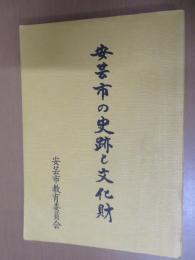 安芸市の史跡と文化財
安芸市教育委員会